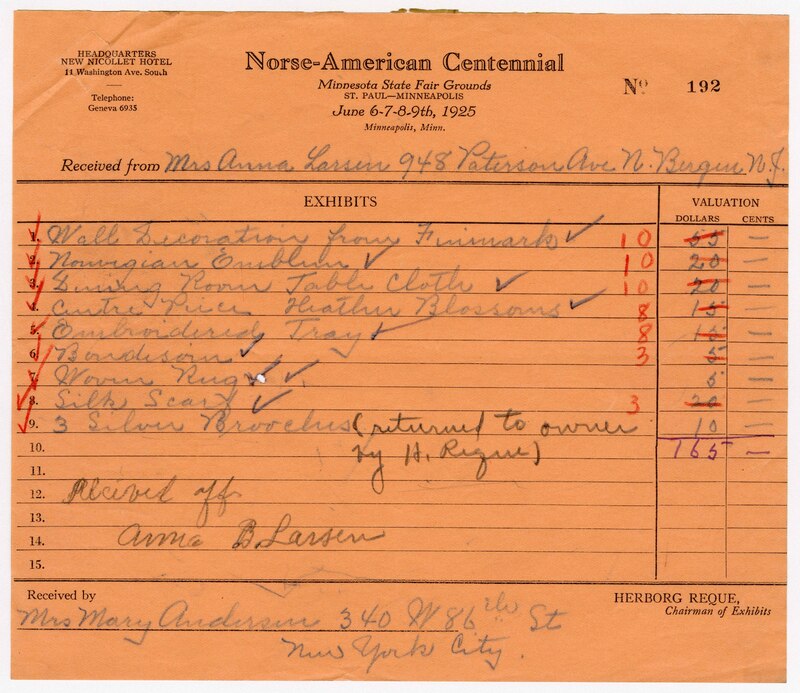 HEADQUARTERS
NEW NICOLLET HOTEL
11 Washington Ave. South
Telephone:
Geneva 6935
Norse-American Centennial
Minnesota State Fair Grounds
ST. PAUL—MINNEAPOLIS
June 6-7-8-9th, 1925
Minneapolis, Minn.
No 192
Received from Mrs Anna Larsen 948 Paterson Ave N. Bergen N.J.
EXHIBITS VALUATION
DOLLARS CENTS
1. Wall Decoration from Finmark ✓ 10 55 —
2. Norwigian Emblem ✓ 10 20 —
3. Dining Room Table Cloth ✓ 10 20 —
4. Centre Piece Heather Blossoms ✓ 8 15 —
5. Embroidered Tray ✓ 8 15 —
6. ✓ 3 5 —
7. Woven Rug ✓ ✓ 5 —
8. Silk Scarf ✓ 3 20 —
9. 3 Silver Brooches (returned to owner 10 —
10. by H. Reque) 165 —
11.
12. Received off
13.
14. Anna B. Larsen
15.
Received by
HERBORG REQUE,
Chairman of Exhibits
Mrs Mary Andersen 340 W 86th St
New York City.